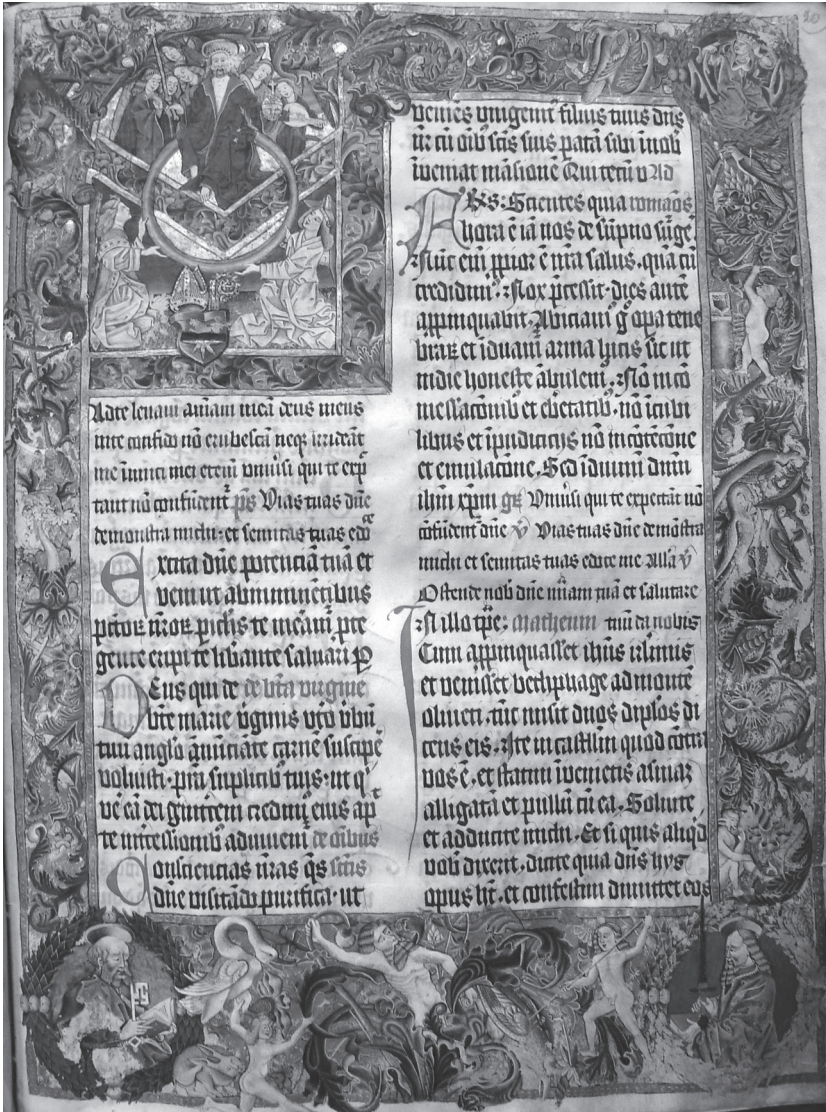 Ad te levavi aīam meā deus meus
in te confido nō erubescā neqʒ irrideāt
me īimici mei etem̄ vnīusi qui te exp̄
tant nō confūdent̄ p̄s Vias tuas dn̄e
demonstra michi: et semitas tuas edo
Excita dn̄e potenciā tuā et
veni ut ab imminētibus
pctōꝝ nr̄oꝝ piclis te meam̄ pte
gente eripi te libante saluari P
Deus qui de de bt̄a virgine
bt̄e marie v̓gīnis vt̓o v̓bū
tuū anglo anūciāte carnē suscipē
voluisti. pr̄a suplicibꝰ tuis. ut q̓
ve̓ eā dei gnitricem credimꝰ eius ap̄
te intcessionibꝰ adiuvem̓ de oībus
Consciencias nr̄as q̄s sctis
dn̄e visitādo purifica. ut
veniēs unigenitꝰ filius tuus dn̄s
nr̄ cū oībꝰ sctīs suis patā sibi ī nob̄
inveniat māsionē Qui tecū v Ad
Fr̄s: Scientes quia romāos
hora ē iā nos de sōpno surge̓
Nūc em̄ ppior ē nr̄a salus. quā cū
credidimꝰ. Nox p̄cessit. dies autē
appinquabit. Abiciamꝰ g̓ oꝑa tene
braꝝ et īduam̄ arma lucis sic ut
in die honeste ābulem̄. Nō in cō
messacōnibꝰ et ebrietatibꝰ. nō ī cubi
libus et īpudiciciis nō in cōtēcōne
et emulacōne. Sed īduimī dn̄m
ihm̄ xp̄m gr̄ Vnīusi qui te expectāt nō
cōfūdent̄ dn̄e v̄ Vias tuas dn̄e demōstra
michi et semitas tuas edoce me Alla v̄
Ostende nob̄ dn̄e mīam tuā et salutare
In illo tp̄e: Matheum tuū da nobis
Cum appinquasset ihūs ihlimis
et venisset bethphage ad montē
oliueti. tūc misit duos disp̄los di
cens eis. Ite in castllm̄ quod cōtra
vos ē. et statim īvenietis asinaꝫ
alligatā et pullū cū ea. Soluite
et adducite michi. Et si quis aliqd
vob̄ dixerit. dicite quia dn̄s hiis
opus ht̄. et confestim dimittet eos